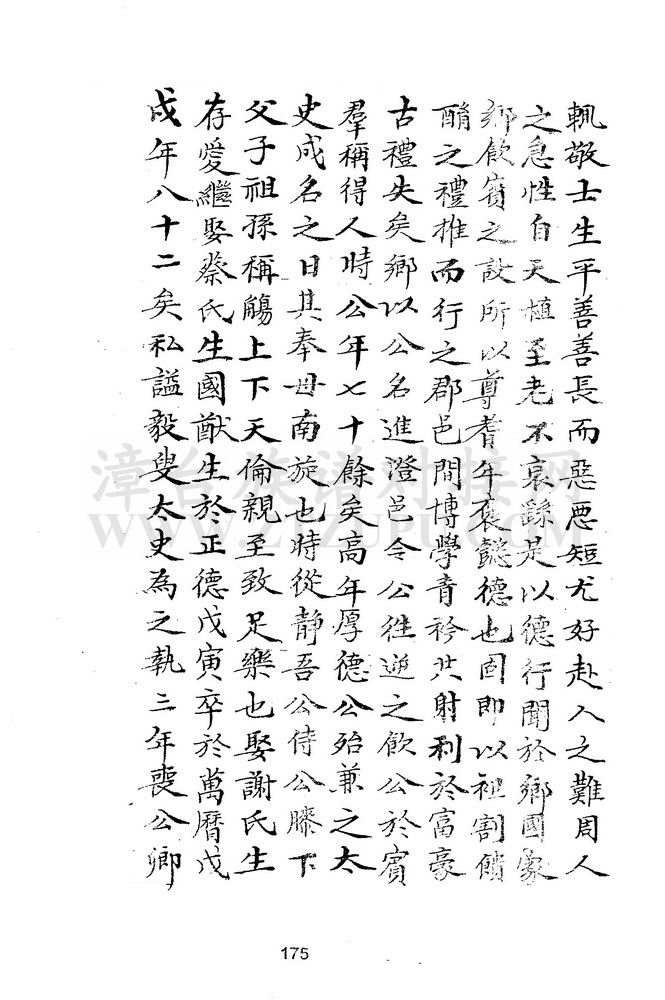 輒敬士生平善善長而惡惡短尤好赴人之難周人
之急性自天植至老不衰繇是以德行聞於鄉國家
鄉飲賓之設所以尊耆年褒懿德也固即以袒割饋
酳之禮推而行之郡邑間博學青衿共射利於富豪
古禮失矣鄉以公名進澄邑令公徃逆之飲公於賓
羣稱得人時公年七十餘矣高年厚德公殆兼之太
史成名之日其奉毌南旋也時從静吾公侍公滕下
父子祖孫稱觴上下天倫親至致足樂也娶謝氏生
存愛繼娶蔡氏生國猷生於正德戊寅卒於萬曆戊
戌年八十二矣私謚毅叟太史為之執三年喪公卿
漳台族谱对接网
WWW.ZTZUPU.COM
175